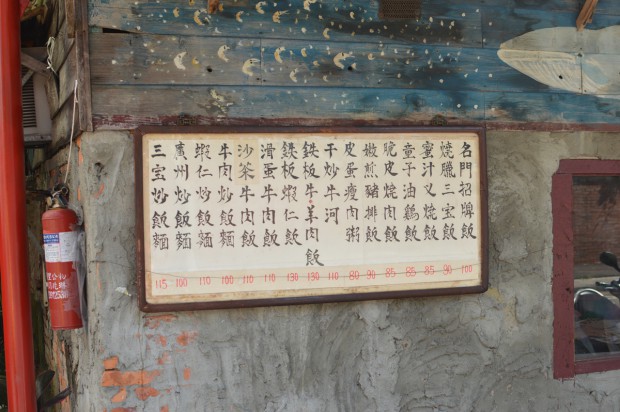 名門招牌飯 100
燒臘三宝飯 90
蜜汁叉燒飯 85
童子油鷄飯 85
脆皮燒肉飯 85
嫩煎豬排飯 90
皮蛋瘦肉粥 80
干炒牛河 110
鉄板牛·羊肉飯 130
鉄板蝦仁飯 130
滑蛋牛肉飯 110
沙茶牛肉飯 110
牛肉炒飯麵 100
蝦仁炒飯麵 110
廣州炒飯麵 100
三宝炒飯麵 115